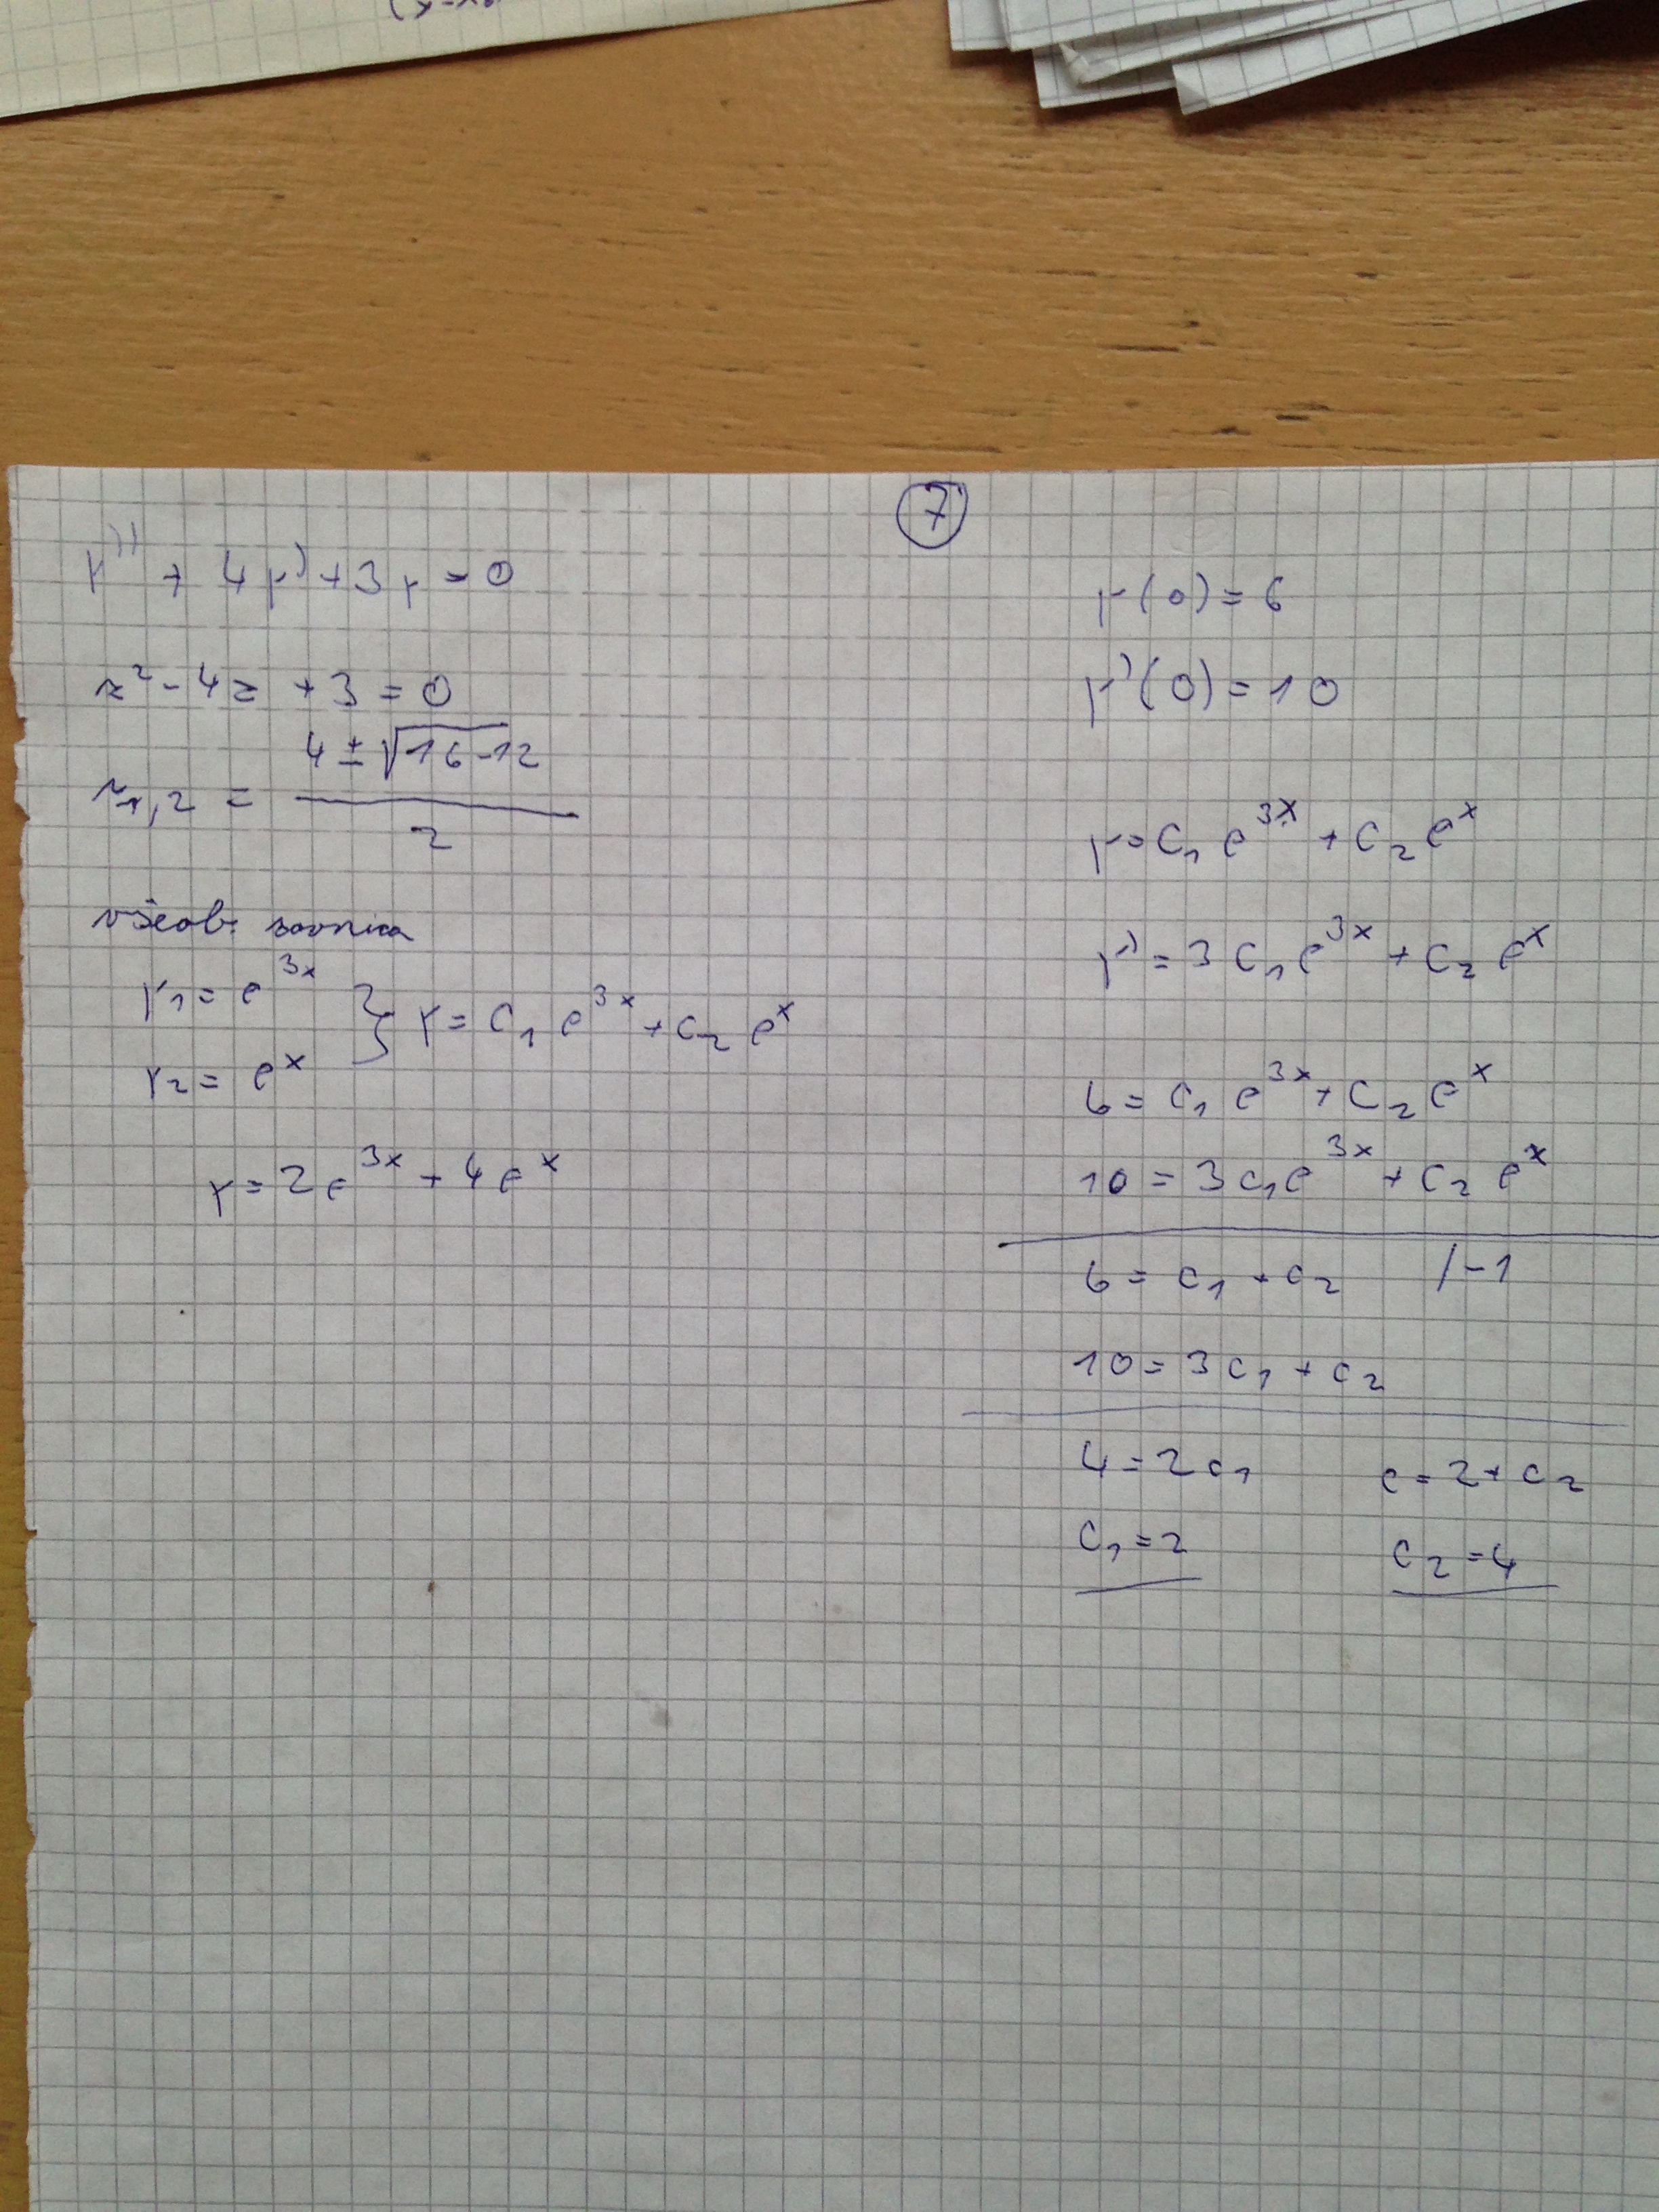 7
y'' + 4y' + 3y = 0
r² - 4r + 3 = 0
r₁,₂ = (4 ± √16-12) / 2
všeob. rovnica
y₁ = e^3x
y₂ = e^x
} y = c₁ e^3x + c₂ e^x
y = 2e^3x + 4e^x
y(0) = 6
y'(0) = 10
y = c₁ e^3x + c₂ e^x
y' = 3c₁ e^3x + c₂ e^x
6 = c₁ e^3x + c₂ e^x
10 = 3c₁e^3x + c₂ e^x
6 = c₁ + c₂ /-1
10 = 3c₁ + c₂
4 = 2c₁
6 = 2 + c₂
c₁ = 2
c₂ = 4